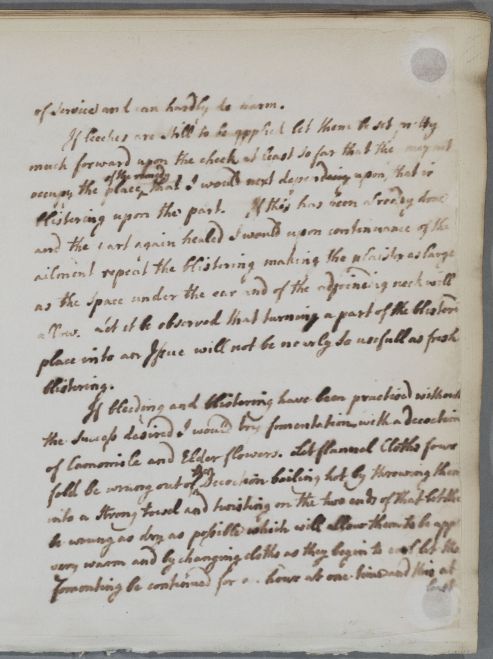 of service and can hardly do harm.
If leeches are still to be applied let them be set pretty
much forward upon the cheek at least so far that the may not
of the remedy
occupy the place that I would next depend upon, that is
blistering upon the part. If this has been already done
and the part again healed I would upon continuance of the
ailment repeat the blistering making the plaister as large
as the space under the ear and of the adjoining neck will
allow. Let it be observed that turning a part of the blistered
place into an Issue will not be nearly so usefull as fresh
blistering.
If bleeding and blistering have been practised without
the success desired I would try fomentation with a decoction
of Camomile and Elder flowers. Let flannel Cloths four
fold be wrung out of this Decoction boiling hot by throwing them
into a strong towel and twisting on the two ends of that let the
be wrung as dry as possible which will allow them to be app
very warm and by changing cloths as they begin to cool let the
fomenting be continued for a hour at one time and this at
least